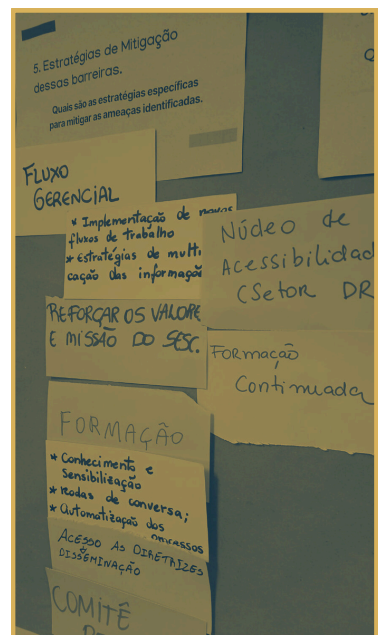 5. Estratégias de Mitigação
dessas barreiras.
Quais são as estratégias específicas
para mitigar as ameaças identificadas.
FLUXO
GERENCIAL
* Implementação de novos
fluxos de trabalho
* Estratégias de multi
cação das informaçõ
REFORÇAR OS VALORE
E MISSÃO DO SESC.
Núcleo de
Acessibilidad
(Setor DR
FORMAÇÃO
Continuada
FORMAÇÃO
* Conhecimento e
Sensibilização
* Rodas de conversa;
* Automatização dos
processos
ACESSO AS DIRETRIZES
E
DISSEMINAÇÃO
COMITÊ